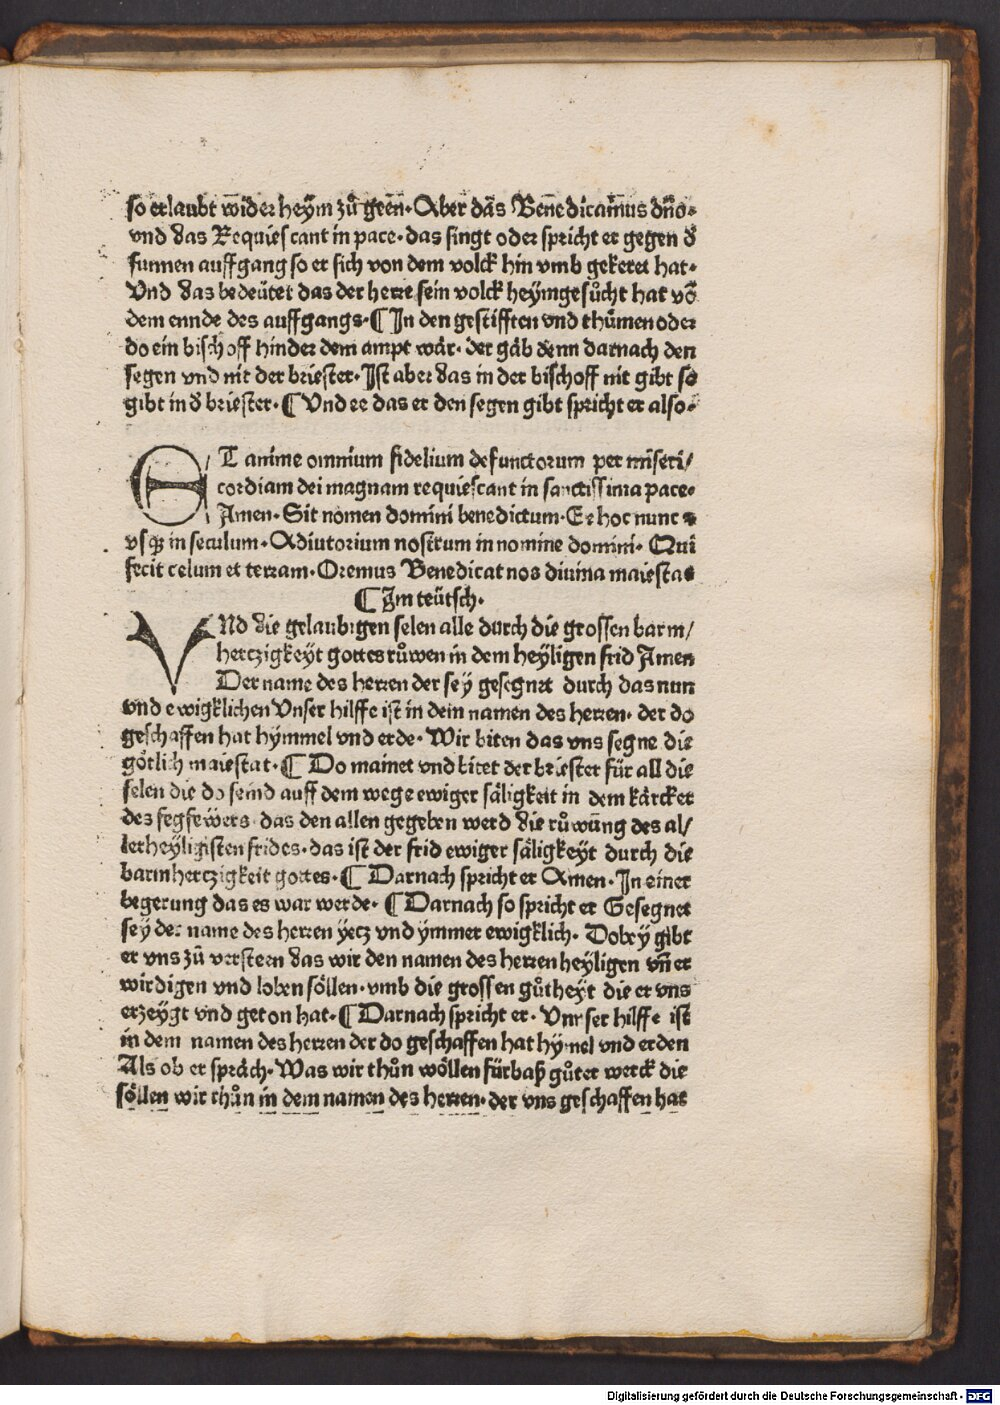 so erlaubt wider heym zů geen· Aber das Benedicamus dño·
vnd das Requiescant in pace· das singt oder spricht er gegen d̾
sunnen auffgang so er sich von dem volck hin vmb gekeret hat·
Vnd das bedeütet das der herre sein volck heymgesůcht hat võ
dem ennde des auffgangs· ¶ In den gestifften vnd thůmen oder
do ein bischoff hinder dem ampt wär· der gäb denn darnach den
segen vnd nit der briester· Ist aber das in der bischoff nit gibt so
gibt in d̾ briester· ¶ Vnd ee das er den segen gibt spricht er also·
ET anime omnium fidelium defunctorum per miseri/
cordiam dei magnam requiescant in sanctissima pace·
Amen· Sit nomen domini benedictum· Ex hoc nunc ⁊
vsqꝫ in seculum· Adiutorium nostrum in nomine domini· Qui
fecit celum et terram· Oremus Benedicat nos diuina maiestas
¶ Im teütsch·
VNd die gelaubigen selen alle durch die grossen barm/
hertzigkeyt gottes růwen in dem heyligen frid Amen
Der name des herren der sey gesegnet durch das nun
vnd ewigklichen Vnser hilffe ist in dem namen des herren· der do
geschaffen hat hymmel vnd erde· Wir biten das vns segne die
götlich maiestat· ¶ Do mainet vnd bitet der briester für all die
selen die do seind auff dem wege ewiger säligkeit in dem kärcker
des fegfewers· das den allen gegeben werd die růwung des al/
lerheyligisten frides· das ist der frid ewiger säligkeyt durch die
barmhertzigkeit gottes· ¶ Darnach spricht er Amen· In einer
begerung das es war werde· ¶ Darnach so spricht er Gesegnet
sey der name des herren yetz vnd ymmer ewigklich· Dobey gibt
er vns zů versteen das wir den namen des herren heyligen vñ er
wirdigen vnd loben söllen· vmb die grossen gůtheyt die er vns
erzeygt vnd geton hat· ¶ Darnach spricht er· Vnnser hilffe ist
in dem namen des herren der do geschaffen hat hymel vnd erden
Als ob er spräch· Was wir thůn wöllen fürbaß gůter werck die
söllen wir thůn in dem namen des herren· der vns geschaffen hat
Digitalisierung gefördert durch die Deutsche Forschungsgemeinschaft - DFG